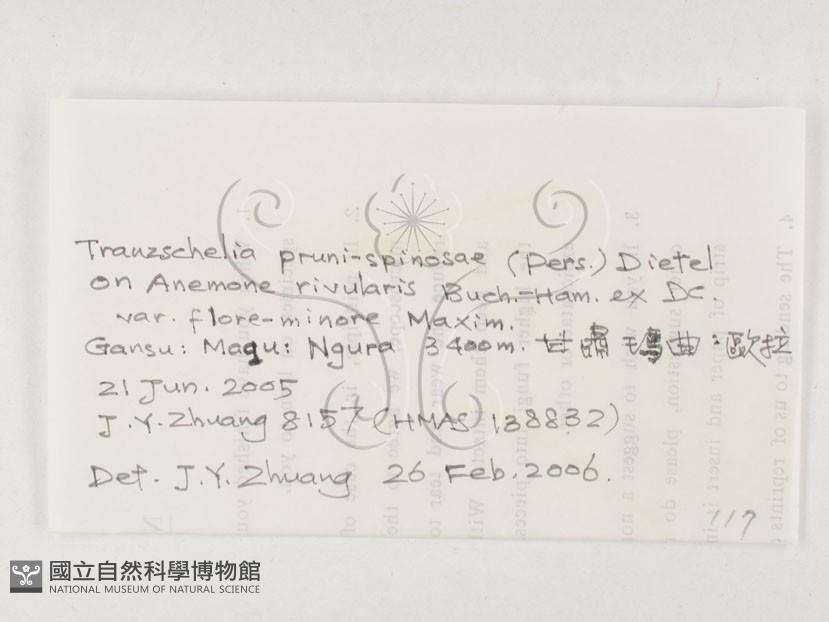 Tranzschelia pruni-spinosae (Pers.) Dietel
on Anemone rivularis Buch.=Ham. ex DC.
var. flore-minore Maxim.
Gansu: Maqu: Ngura 3400m. 甘肅瑪曲:歐拉
21 Jun. 2005
J.Y. Zhuang 8157 (HMAS 138832)
Det. J.Y. Zhuang 26 Feb, 2006.
117
國立自然科學博物館
NATIONAL MUSEUM OF NATURAL SCIENCE